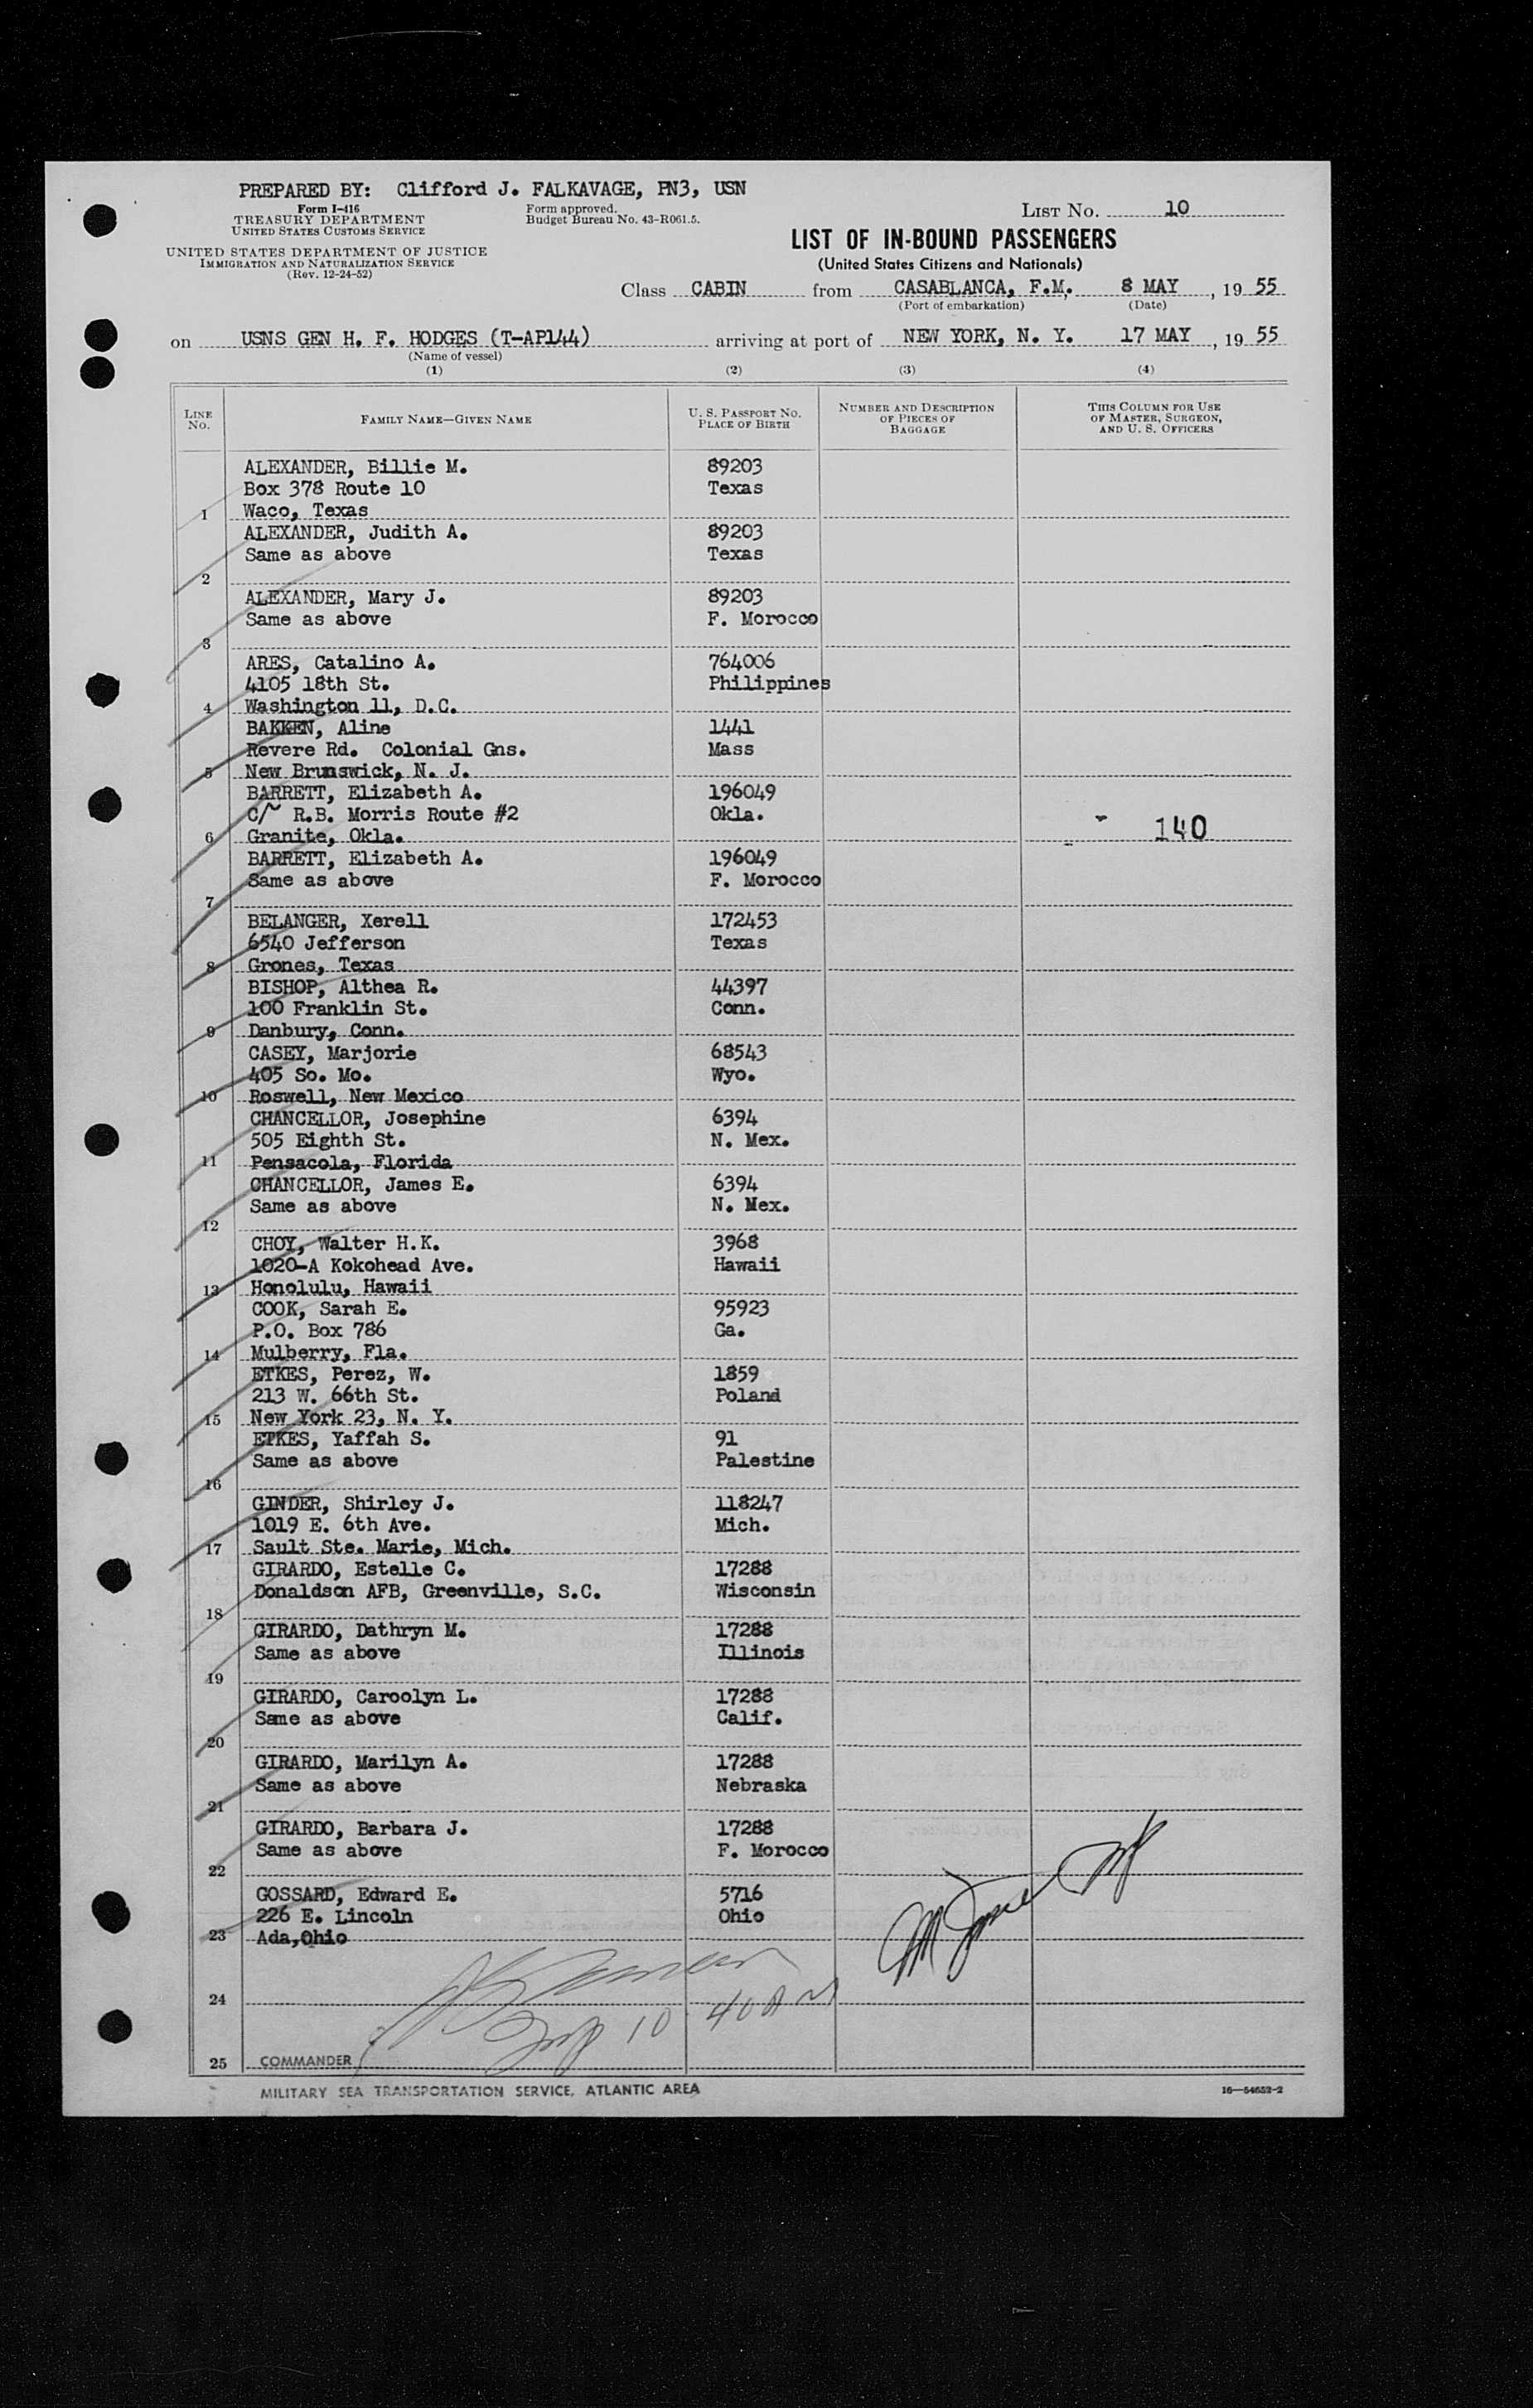 PREPARED BY: Clifford J. FALKAVAGE, PN3, USN
Form I-416
TREASURY DEPARTMENT
UNITED STATES CUSTOMS SERVICE
Form approved.
Budget Bureau No. 43-R061.5.
LIST NO. 10
UNITED STATES DEPARTMENT OF JUSTICE
IMMIGRATION AND NATURALIZATION SERVICE
(Rev. 12-24-52)
LIST OF IN-BOUND PASSENGERS
(United States Citizens and Nationals)
Class CABIN from CASABLANCA, F.M. 8 MAY, 19 55
(Port of embarkation) (Date)
on USNS GEN H. F. HODGES (T-AP144) arriving at port of NEW YORK, N. Y. 17 MAY, 19 55
(Name of vessel)
(1) (2) (3) (4)
LINE NO. FAMILY NAME—GIVEN NAME U. S. PASSPORT NO. PLACE OF BIRTH NUMBER AND DESCRIPTION OF PIECES OF BAGGAGE THIS COLUMN FOR USE OF MASTER, SURGEON, AND U. S. OFFICERS
ALEXANDER, Billie M. 89203
Box 378 Route 10 Texas
1 Waco, Texas
ALEXANDER, Judith A. 89203
Same as above Texas
2
ALEXANDER, Mary J. 89203
Same as above F. Morocco
3
ARES, Catalino A. 764006
4105 18th St. Philippines
4 Washington 11, D.C.
BAKKEN, Aline 1441
Revere Rd. Colonial Gns. Mass
5 New Brunswick, N. J.
BARRETT, Elizabeth A. 196049
C/~ R.B. Morris Route #2 Okla.
6 Granite, Okla. 140
BARRETT, Elizabeth A. 196049
Same as above F. Morocco
7
BELANGER, Xerell 172453
6540 Jefferson Texas
8 Grones, Texas
BISHOP, Althea R. 44397
100 Franklin St. Conn.
9 Danbury, Conn.
CASEY, Marjorie 68543
405 So. Mo. Wyo.
10 Roswell, New Mexico
CHANCELLOR, Josephine 6394
505 Eighth St. N. Mex.
11 Pensacola, Florida
CHANCELLOR, James E. 6394
Same as above N. Mex.
12
CHOY, Walter H.K. 3968
1020-A Kokohead Ave. Hawaii
13 Honolulu, Hawaii
COOK, Sarah E. 95923
P.O. Box 786 Ga.
14 Mulberry, Fla.
ETKES, Perez, W. 1859
213 W. 66th St. Poland
15 New York 23, N. Y.
ETKES, Yaffah S. 91
Same as above Palestine
16
GINDER, Shirley J. 118247
1019 E. 6th Ave. Mich.
17 Sault Ste. Marie, Mich.
GIRARDO, Estelle C. 17288
Donaldson AFB, Greenville, S.C. Wisconsin
18
GIRARDO, Dathryn M. 17288
Same as above Illinois
19
GIRARDO, Caroolyn L. 17288
Same as above Calif.
20
GIRARDO, Marilyn A. 17288
Same as above Nebraska
21
GIRARDO, Barbara J. 17288
Same as above F. Morocco
22
GOSSARD, Edward E. 5716
226 E. Lincoln Ohio
23 Ada,Ohio
24
10 40 AM
25 COMMANDER
MILITARY SEA TRANSPORTATION SERVICE, ATLANTIC AREA
16—54652-2